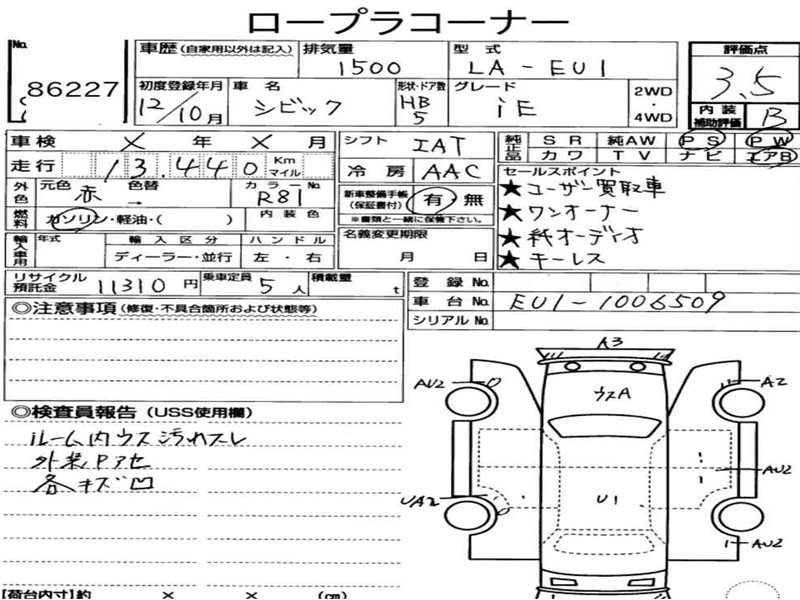 ロープラコーナー
No. 86227
車歴 (自家用以外は記入) 排気量 1500 型式 LA-EU1
評価点 3.5
内装補助評価 B
初度登録年月 12/10月 車名 シビック 形状・ドア数 HB 5 グレード iE 2WD・4WD
車検 × 年 × 月 シフト IAT 純正品 SR 純AW PS PW
カワ TV ナビ エアB
走行 13,440 Km マイル 冷房 AAC
外色 元色 赤 色替 → カラーNo. R81
新車整備手帳(保証書付) 有・無
※書類と一緒に保管下さい。
燃料 ガソリン・軽油・( ) 内装色
セールスポイント
★ユーザー買取車
★ワンオーナー
★純オーディオ
★キーレス
輸入車用 年式 輸入区分 ハンドル
ディーラー・並行 左・右
名義変更期限 月 日
リサイクル預託金 11310円 乗車定員 5人 積載量 t
登録No.
車台No. EU1-1006509
シリアルNo.
◎注意事項 (修復・不具合箇所および状態等)
◎検査員報告 (USS使用欄)
ルーム内ウス汚れスレ
外装Pアセ
各キズ凹
A3
AU2 ウスA A2
AU2
UA2 U1
AU2
【荷台内寸】約 × × (cm)